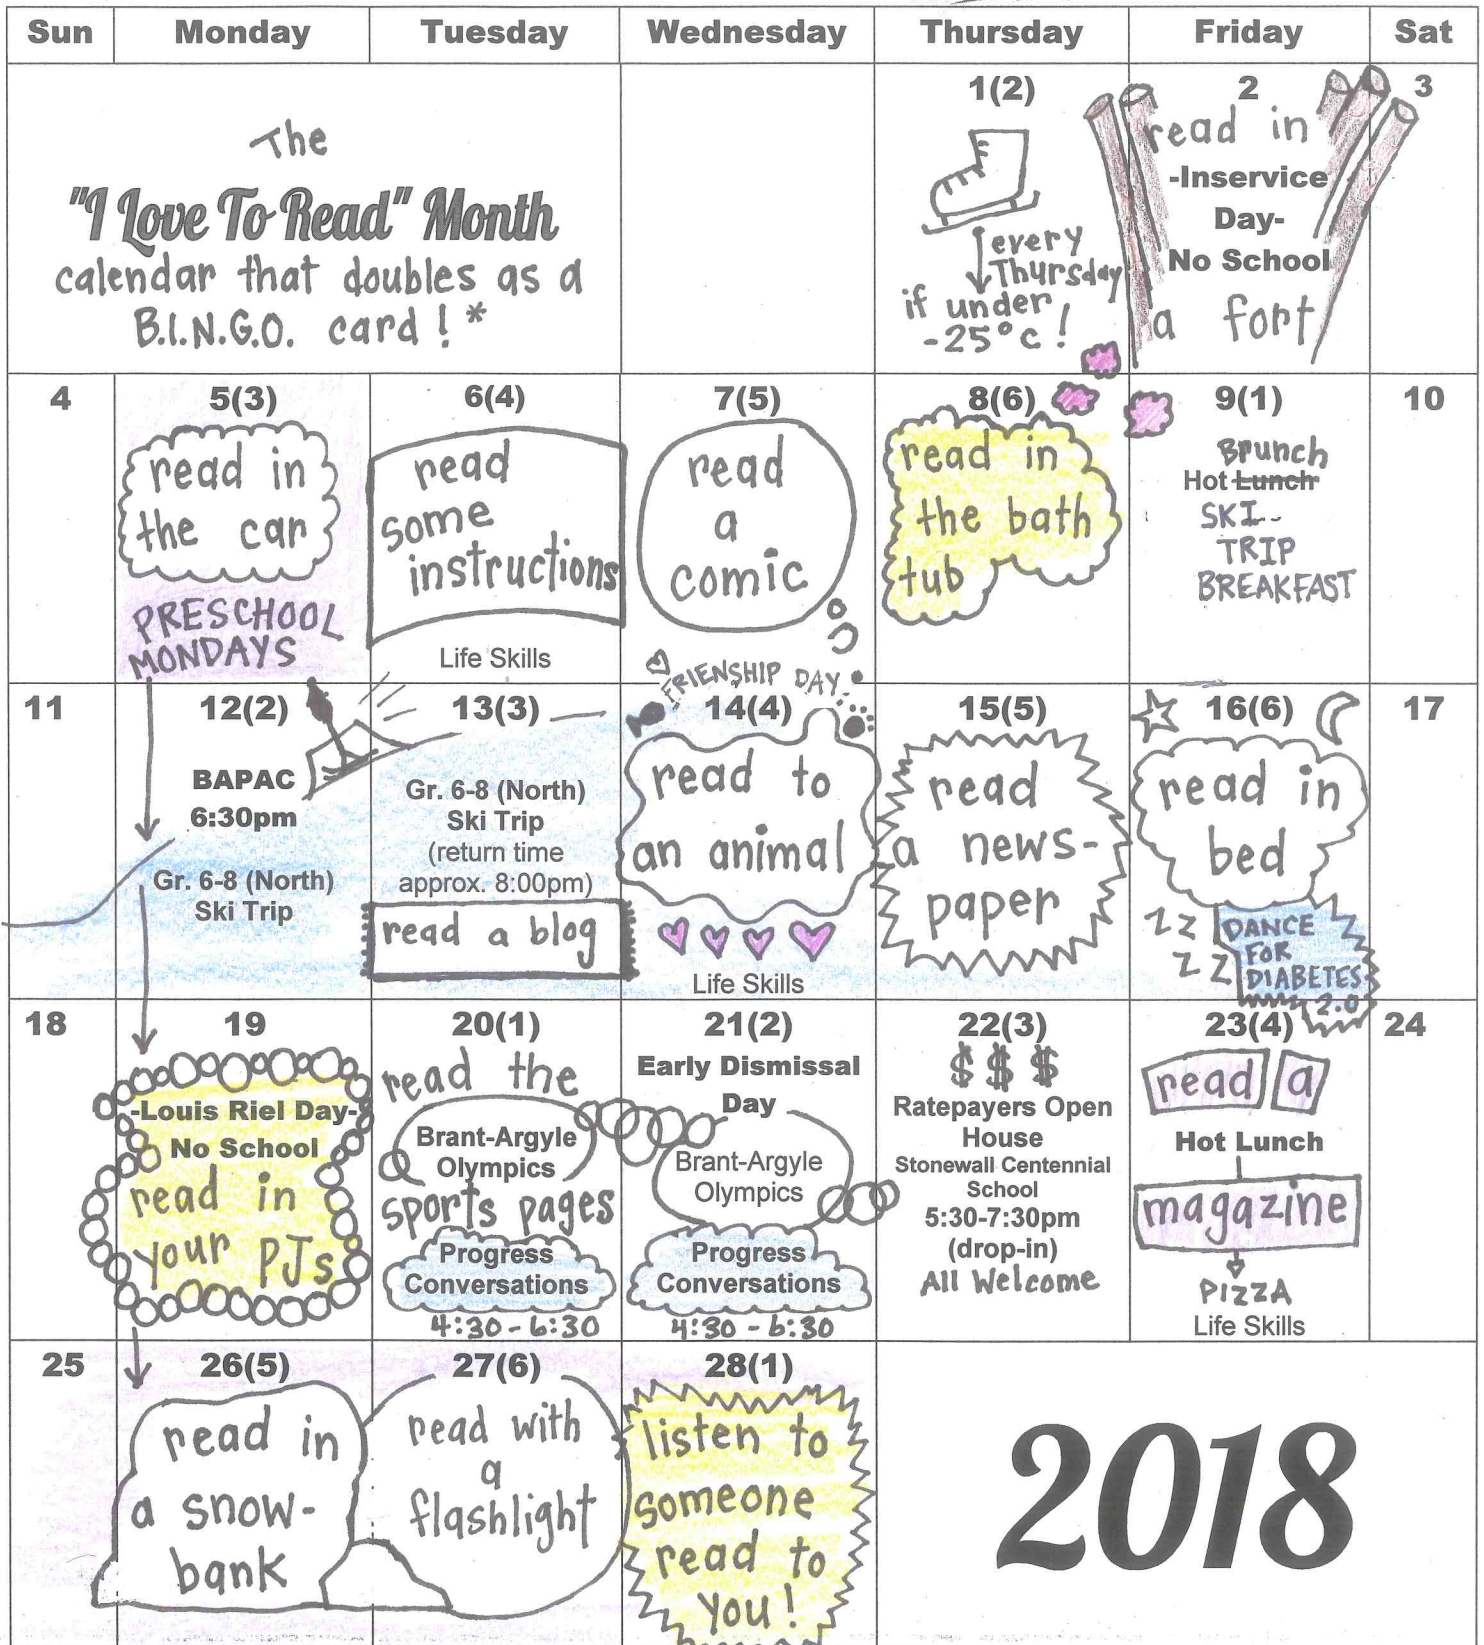 Sun Monday Tuesday Wednesday Thursday Friday Sat
The
"I Love To Read" Month
calendar that doubles as a
B.I.N.G.O. card! *
1(2)
every
Thursday
if under
-25°c!
2
read in
-Inservice
Day-
No School
a fort
3
4
5(3)
read in
the car
PRESCHOOL
MONDAYS
6(4)
read
some
instructions
Life Skills
7(5)
read
a
comic
8(6)
read in
the bath
tub
9(1)
Brunch
Hot Lunch
SKI-
TRIP
BREAKFAST
10
11
12(2)
BAPAC
6:30pm
Gr. 6-8 (North)
Ski Trip
13(3)
Gr. 6-8 (North)
Ski Trip
(return time
approx. 8:00pm)
read a blog
FRIENSHIP DAY
14(4)
read to
an animal
Life Skills
15(5)
read
a news-
paper
16(6)
read in
bed
Z Z
Z Z
DANCE
FOR
DIABETES
2.0
17
18
19
-Louis Riel Day-
No School
read in
your PJs
20(1)
read the
Brant-Argyle
Olympics
sports pages
Progress
Conversations
4:30-6:30
21(2)
Early Dismissal
Day
Brant-Argyle
Olympics
Progress
Conversations
4:30-6:30
22(3)
$ $ $
Ratepayers Open
House
Stonewall Centennial
School
5:30-7:30pm
(drop-in)
All Welcome
23(4)
read a
Hot Lunch
magazine
PIZZA
Life Skills
24
25
26(5)
read in
a snow-
bank
27(6)
read with
a
flashlight
28(1)
listen to
someone
read to
you!
2018